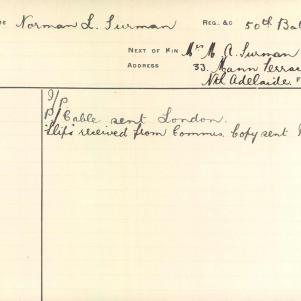 Norman L. Surman REG. &C 50th Bat
NEXT OF KIN Mrs M. A. Surman
ADDRESS 33. Mann Terrac
Nth Adelaide.
I/P
P/P Cable sent London.
Slips received from Commis. Copy sent